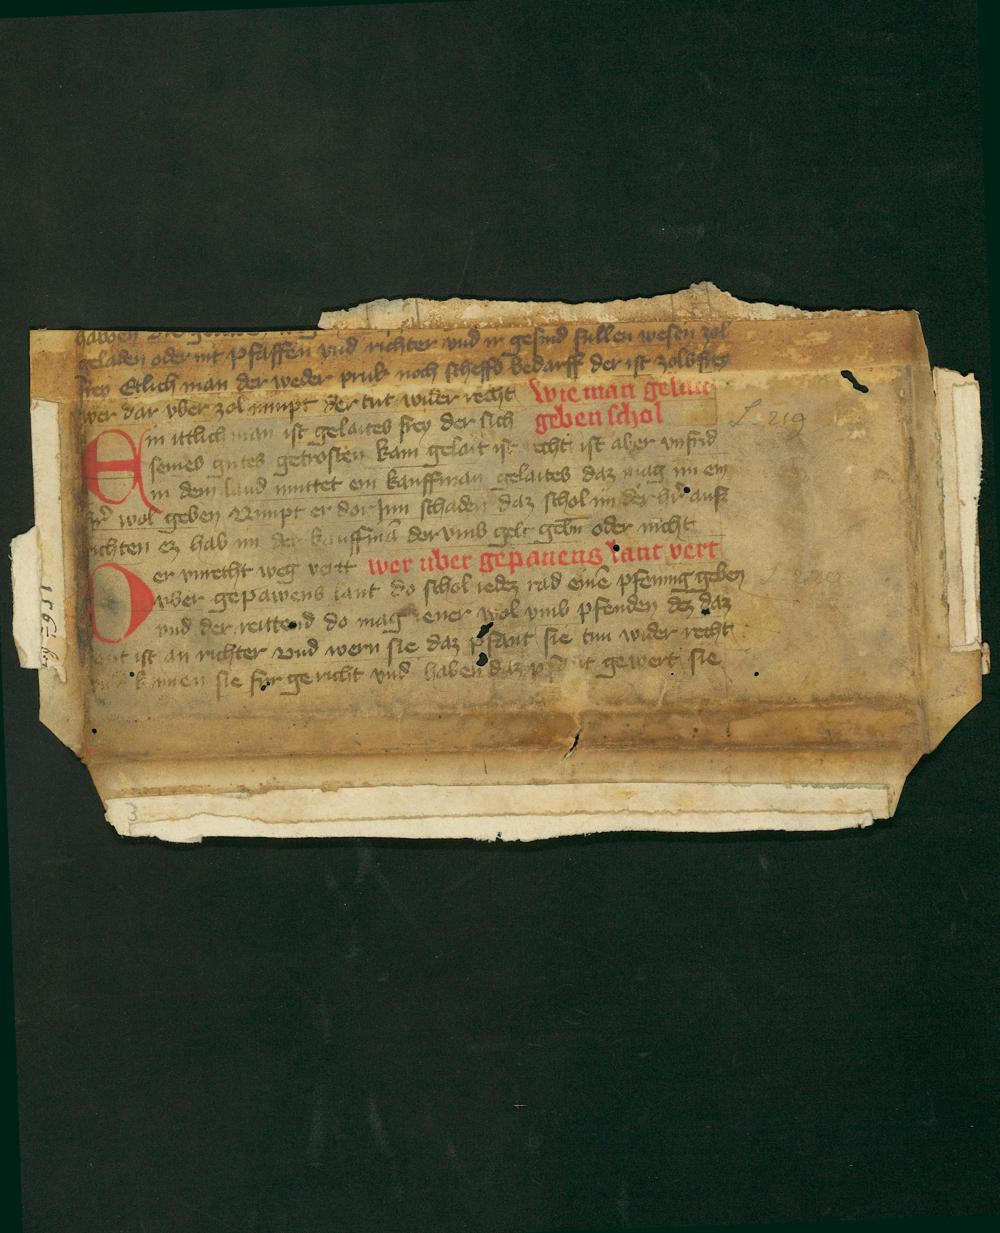 geladen oder mit pfaffen vnd richter vnd ir gesind sullen wesen zol
frey Etlich man der weder pruk noch scheffs bedarff der ist zols frey
wer dar vber zol nimpt der tut wider recht Wie man gelait
geben schol
Ein itlich man ist gelaites frey der sich
seines gutes getrosten kam gelait ist recht ist aber vnfrid
in dem land muttet ein kauffman gelaites daz mag im ein
wol geben Nimpt er dor jnn schaden daz schol im der hr aufz
richten ez hab im der kauffmā dor vmb gelt gebn oder nicht
wer uber gepauens lant vert
Der vnrecht weg vert
vber gepawens lant do schol iedez rad eine pfennig geben
vnd der reittend do mag ener wol vmb pfenden dez daz
lant ist an richter vnd wern sie daz pfant sie tun wider recht
sie fur gericht vnd haben daz gewert sie
L. 219
3